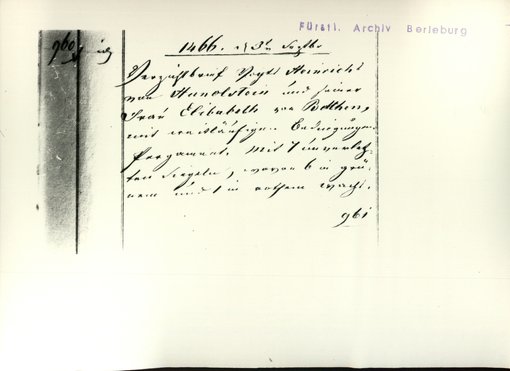 Fürstl. Archiv Berleburg
960
1466. 3t Septbr
Verzichtbrief Vogts Heinrichs
von Hunolstein und seiner
Frau Elisabeth von Bolchen,
mit weitläufigen Bedingungen.
Pergament. Mit 7 unverletz-
ten Siegeln, wovon 6 in grü-
nem und 1 in rothem Wachs.
961